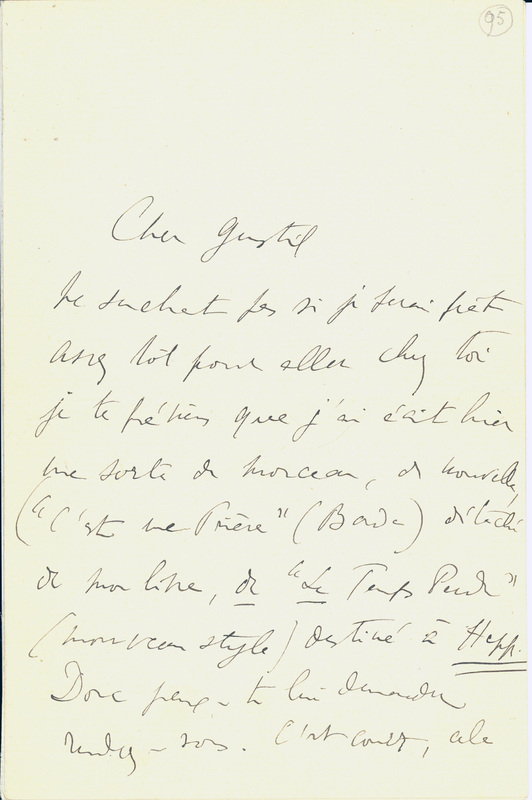 95
Cher
Ne sachant pas si je serai prêt
assez tôt pour aller chez toi
je te préviens que j'ai écrit hier
une sorte de morceau, de nouvelle,
("C'est une Prière" () détaché
de mon livre, de "Le Temps Perdu"
(nouveau style) destiné à Hepp.
Donc peux-tu lui demander
rendez-vous. C'est court, cela